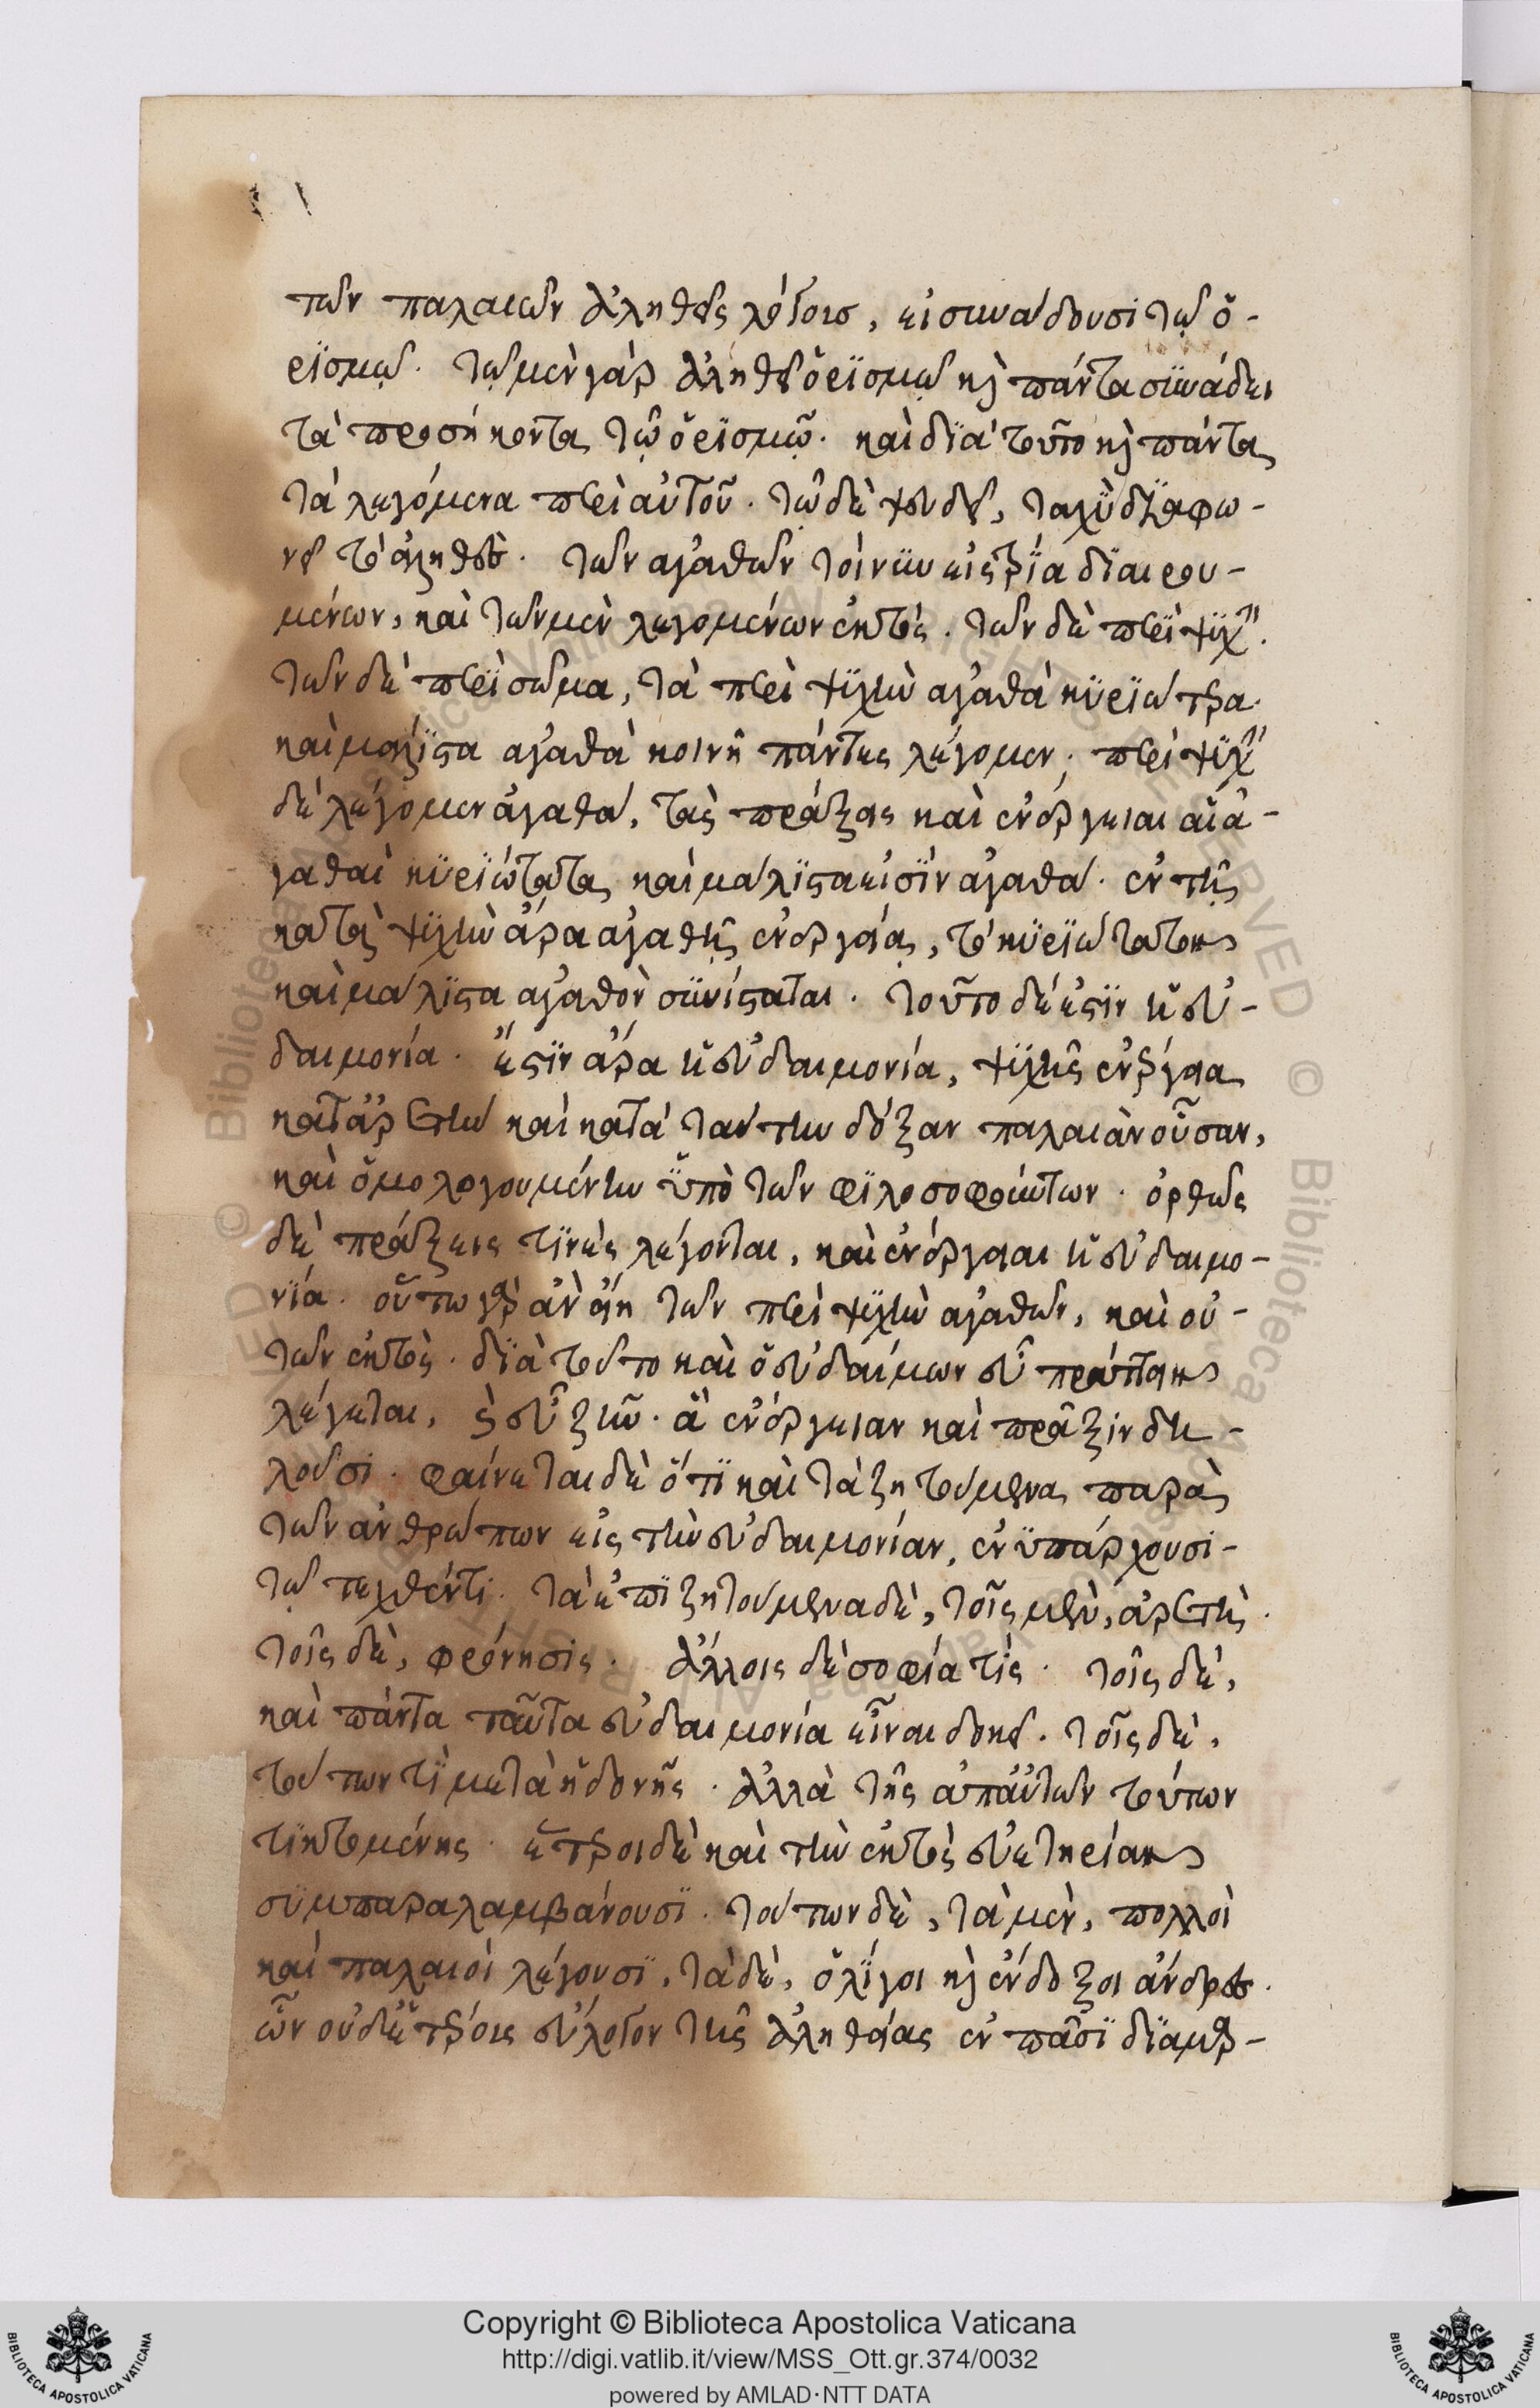 των παλαιῶν ἀληθεῖς λόγοις, εἰ συνάδουσι τῷ ὁ-
ρϊσμῷ. τῷ μὲν γὰρ ἀληθεῖ ὁρϊσμῷ κὶ πάντα συνάδει
τὰ προσήκοντα τῷ ὁρϊσμῷ. καὶ δϊὰ τοῦτο κὶ πάντα
τὰ λεγόμενα περὶ αὐτοῦ. τῷ δὲ ψευδεῖ, ταχὺ δϊαφω-
νεῖ τὸ ἀληθὲς. τῶν ἀγαθῶν τοίνυν εἰς τρία δϊαιρου-
μένων, καὶ τῶν μὲν λεγομένων ἐκτός. τῶν δὲ περὶ ψϋχὴν.
τῶν δὲ περὶ σῶμα, τὰ περὶ ψϋχὴν ἀγαθὰ κϋρϊώτερα.
καὶ μάλϊστα ἀγαθὰ κοινῇ πάντες λέγομεν. περὶ ψϋχὴν
δὲ λέγομεν ἀγαθά, τὰς πράξεις καὶ ἐνέργειαι αἱ ἀ-
γαθαὶ κϋρϊώτατα καὶ μάλϊστα εἰσϊν ἀγαθά. ἐν τῇ
κατὰ ψϋχὴν ἄρα ἀγαθῇ ἐνεργείᾳ, τὸ κϋρϊώτατον
καὶ μάλϊστα ἀγαθὸν συνίσταται. τοῦτο δέ ἐστϊν ἡ εὐ-
δαιμονία. ἔστϊν ἄρα ἡ εὐδαιμονία, ψϋχῆς ἐνέργεια
κατ' ἀρετὴν καὶ κατὰ ταύτην δόξαν παλαιὰν οὖσαν,
καὶ ὁμολογουμένην ὑπὸ τῶν φϊλοσοφούντων. ὀρθῶς
δὲ πράξεις τϊνὲς λέγονται, καὶ ἐνέργειαι ἡ εὐδαιμο-
νία. οὕτω γὰρ ἂν εἴη τῶν περὶ ψϋχὴν ἀγαθῶν, καὶ οὐ-
τῶν ἐκτὸς. δϊὰ τοῦτο καὶ ὁ εὐδαίμων εὖ πράττειν
λέγεται, κὶ εὖ ζῆν. ἃ ἐνέργειαν καὶ πρᾶξιν δη-
λοῦσι. φαίνεται δὲ ὅτϊ καὶ τὰ ζητούμενα παρὰ
τῶν ἀνθρώπων εἰς τὴν εὐδαιμονίαν, ἐνϋπάρχουσι-
τῷ λεχθέντι. τὰ ἐπϊζητούμενα δὲ, τοῖς μὲν, ἀρετὴ.
τοῖς δὲ, φρόνησις. ἄλλοις δὲ σοφία τὶς. τοῖς δὲ,
καὶ πάντα ταῦτα εὐδαιμονία εἶναι δοκεῖ. τοῖς δὲ,
τούτων τϊ μετὰ ἡδονῆς. ἀλλὰ τῆς ἀπ' αὐτῶν τούτων
τϊκτομένης. ἕτεροι δὲ καὶ τὴν ἐκτὸς εὐετηρίαν
σϋμπαραλαμβάνουσϊ. τούτων δὲ, τὰ μὲν, πολλοὶ
καὶ παλαιοὶ λέγουσϊ, τὰ δὲ, ὀλϊγοι κὶ ἔνδοξοι ἄνδρες.
ὧν οὐδετέροις εὔλογον τῆς ἀληθείας ἐν πᾶσϊ δϊαμαρ-
Copyright © Biblioteca Apostolica Vaticana
http://digi.vatlib.it/view/MSS_Ott.gr.374/0032
powered by AMLAD·NTT DATA